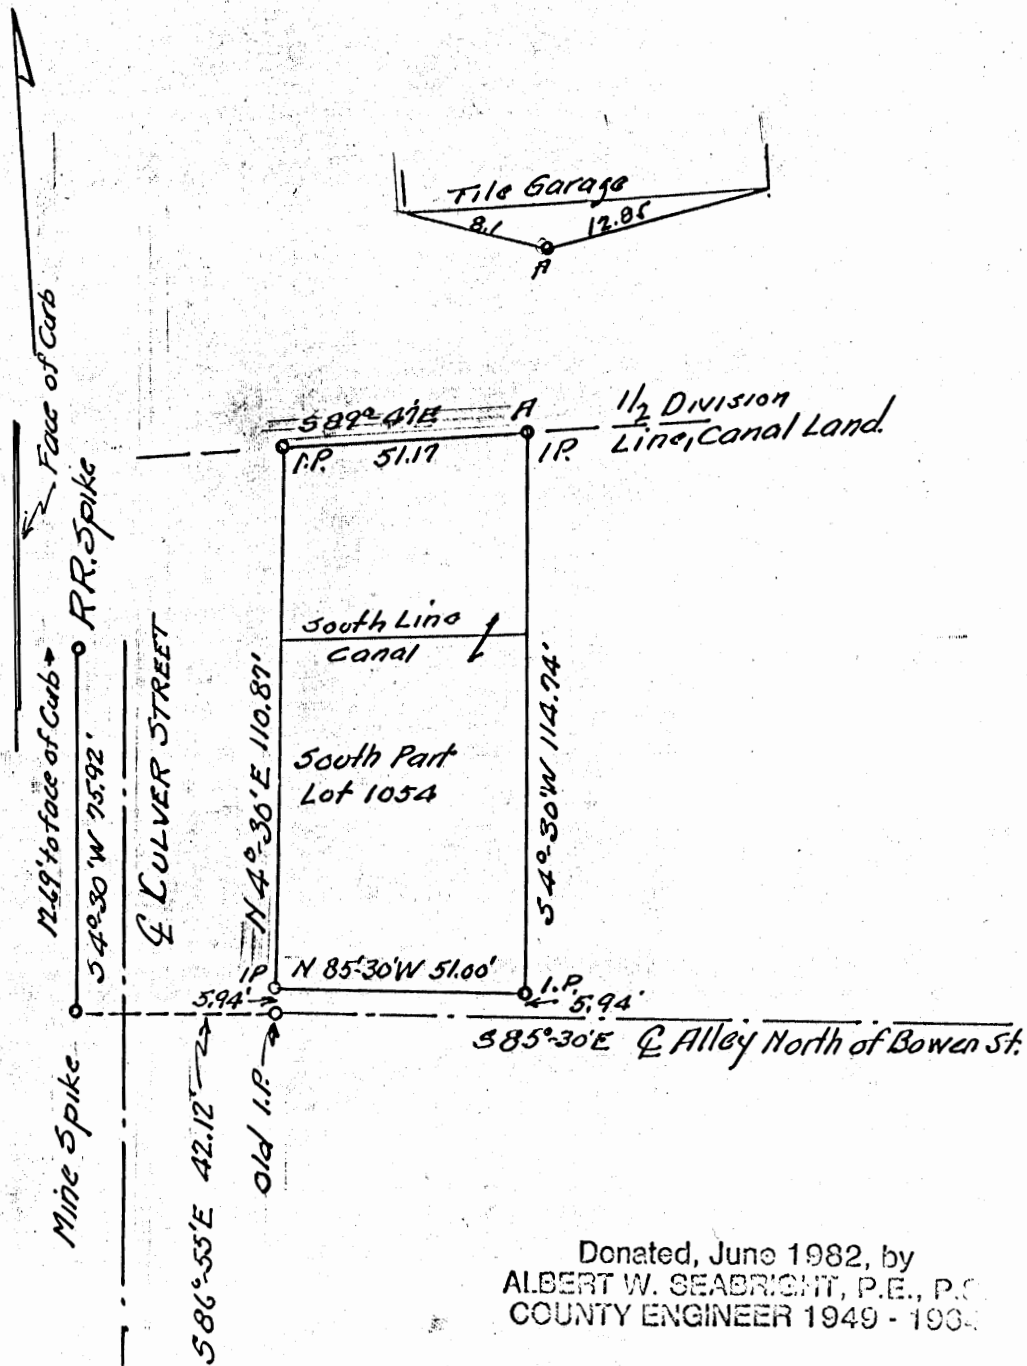 Tile Garage
8.1
12.85
A
Face of Curb
S 89°-47'E
A
1/2 Division
Line, Canal Land.
I.P.
51.17
I.P.
R.R. Spike
South Line
Canal
12.69' to face of Curb
S 4°-30'W 75.92'
℄ CULVER STREET
N 4°-30'E 110.87'
South Part
Lot 1054
S 4°-30'W 114.74'
I.P.
N 85°-30'W 51.00'
I.P.
5.94'
5.94'
S 85°-30'E ℄ Alley North of Bowen St.
Mine Spike
S 86°-55'E 42.12'
Old I.P.
Donated, June 1982, by
ALBERT W. SEABRIGHT, P.E., P.S.
COUNTY ENGINEER 1949 -